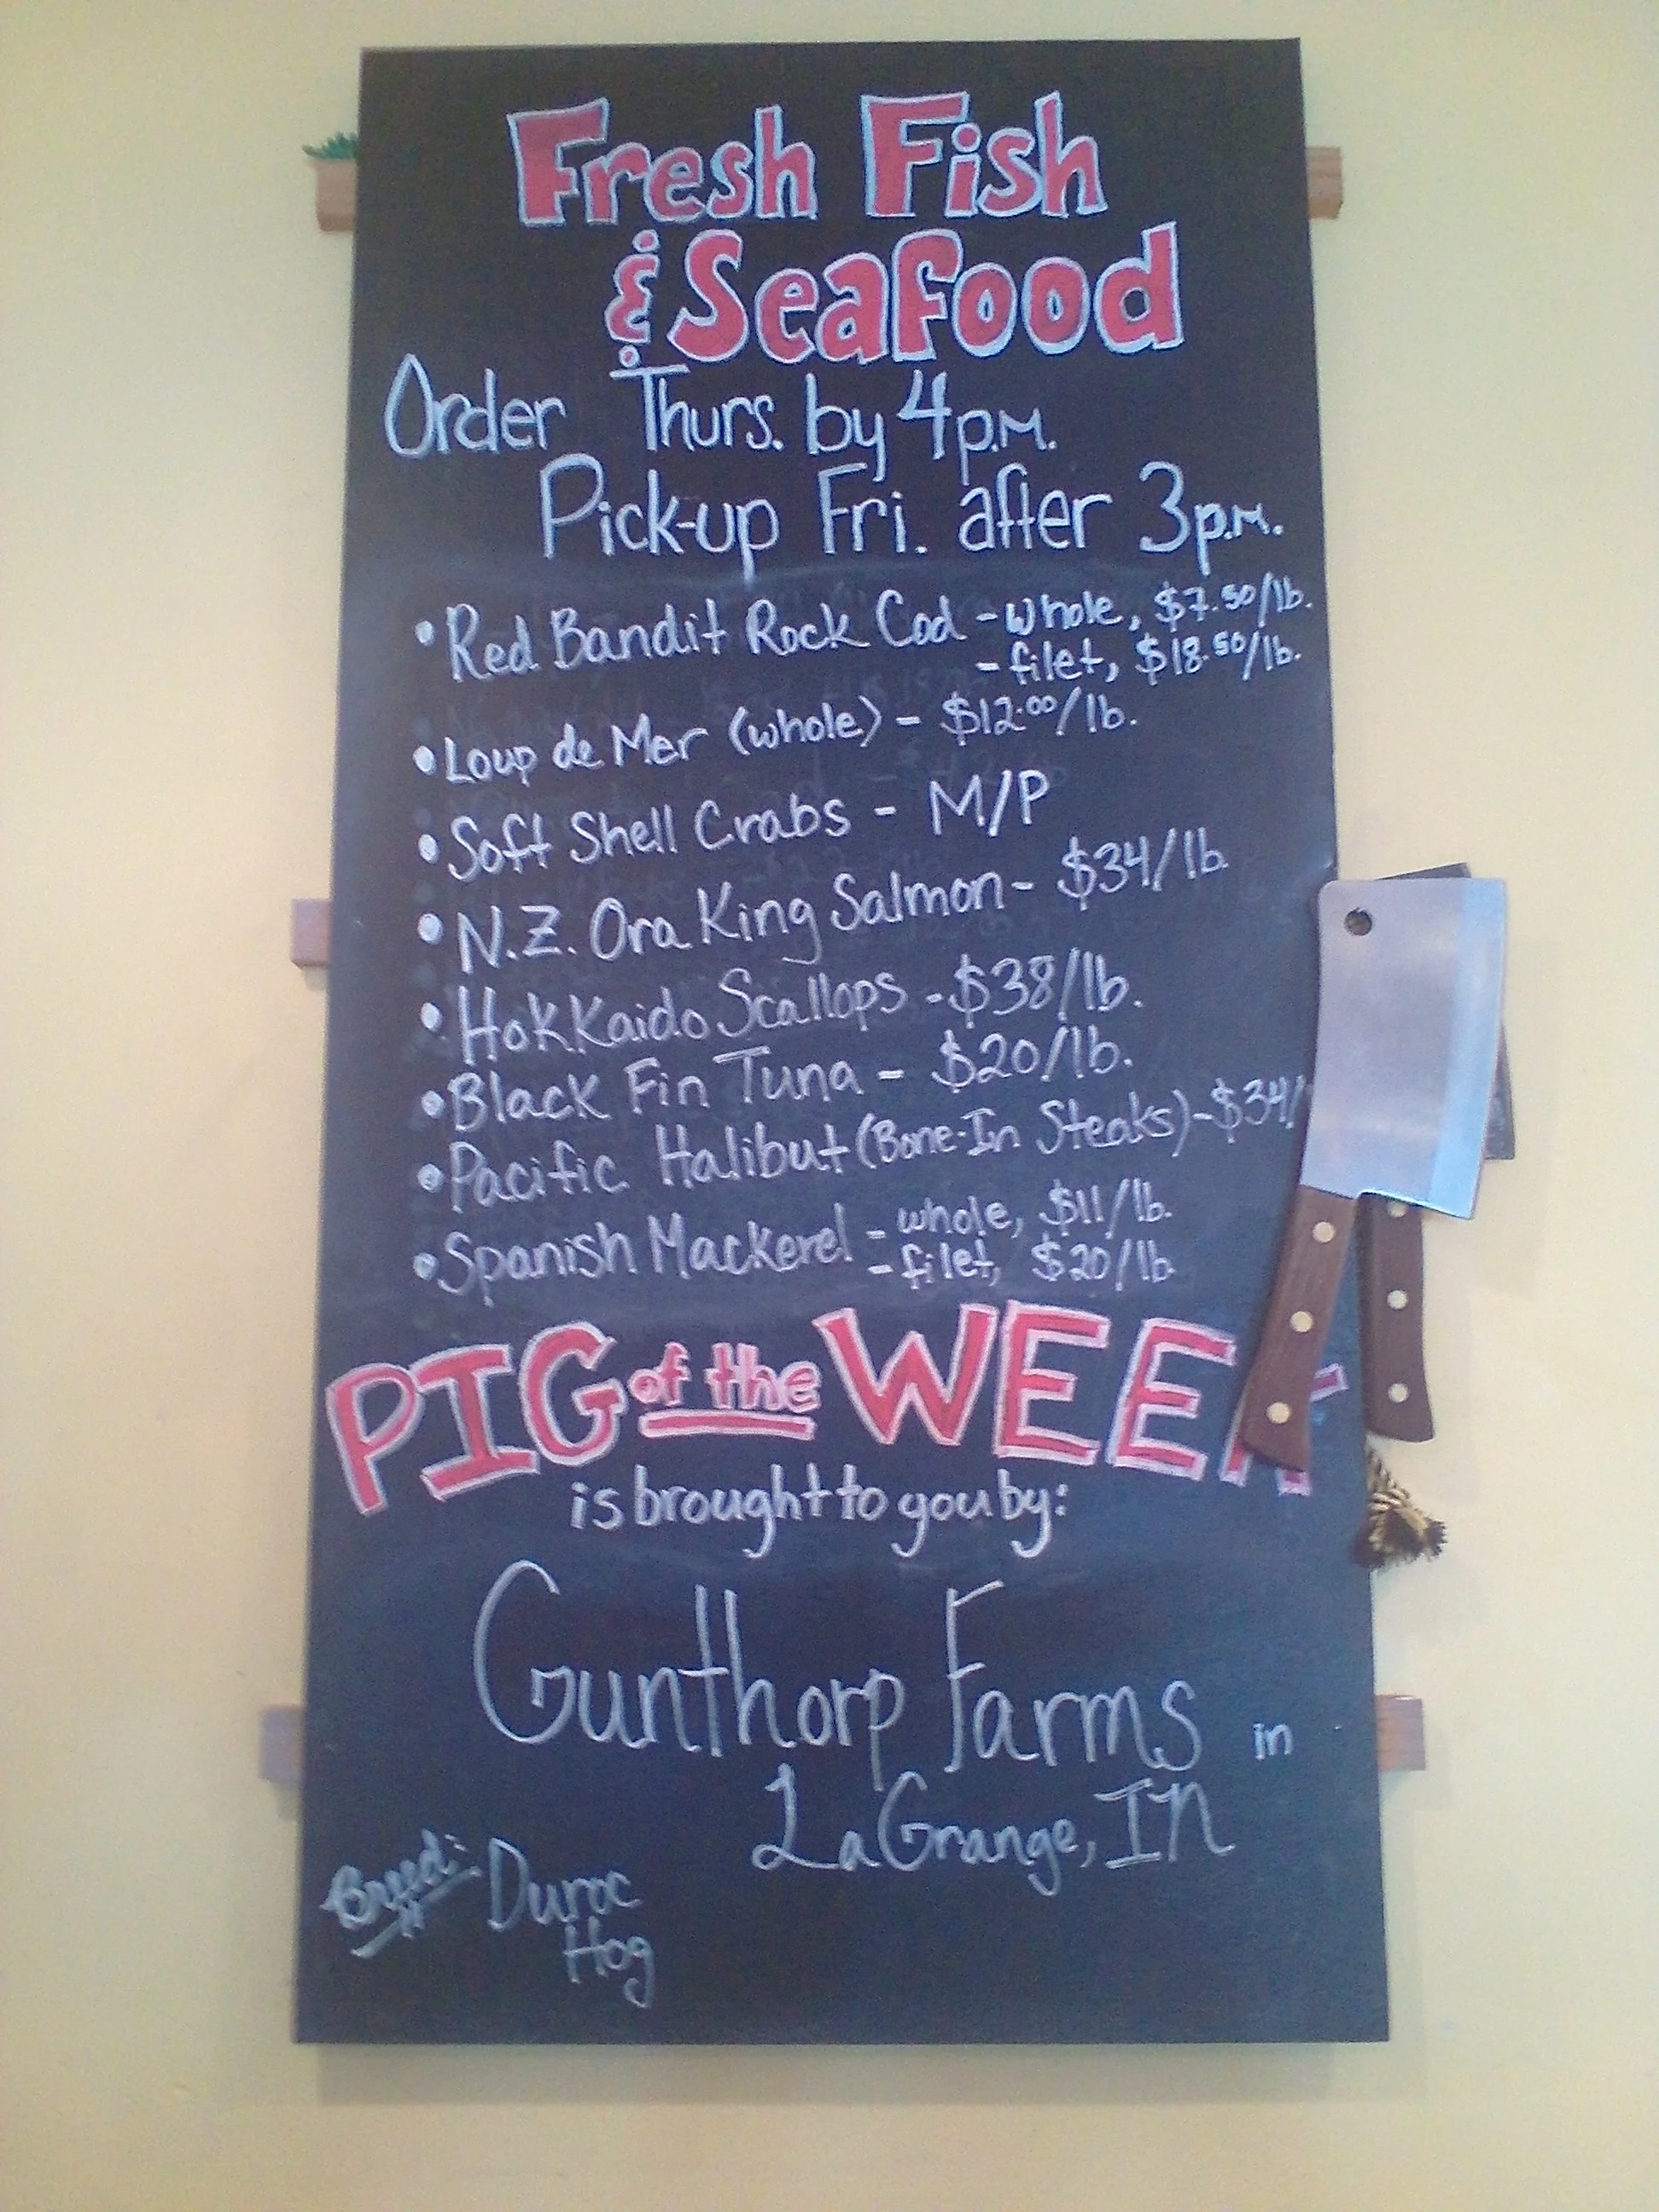 Fresh Fish
& Seafood
Order Thurs. by 4 p.m.
Pick-up Fri. after 3 p.m.
• Red Bandit Rock Cod - whole, $7.50/lb.
- filet, $18.50/lb.
• Loup de Mer (whole) - $12.00/lb.
• Soft Shell Crabs - M/P
• N.Z. Ora King Salmon - $34/lb
• Hokkaido Scallops - $38/lb.
• Black Fin Tuna - $20/lb.
• Pacific Halibut (Bone-In Steaks) - $34/
• Spanish Mackerel - whole, $11/lb.
- filet, $20/lb
PIG of the WEEK
is brought to you by:
Gunthorp Farms in
LaGrange, IN
Breed: Duroc
Hog